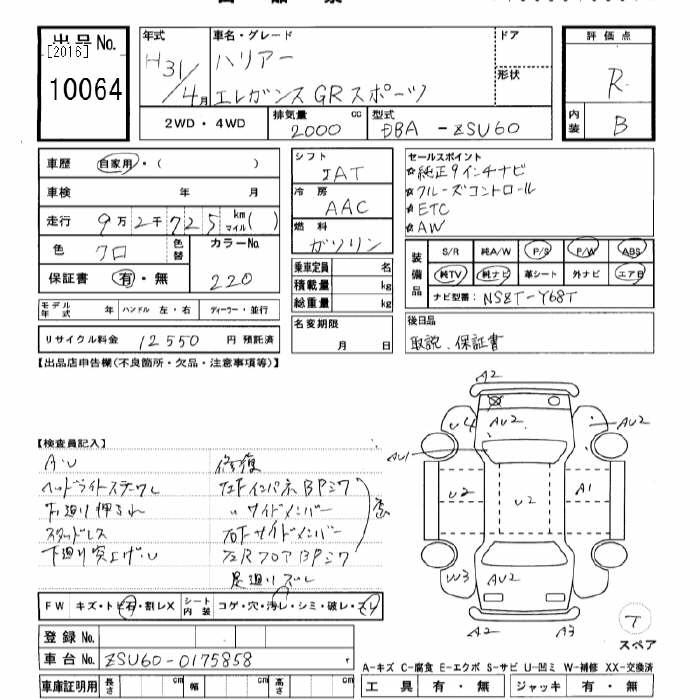 出品No. [2016]
10064
年式 H31/4月
車名・グレード ハリアー
エレガンス GRスポーツ
ドア
形状
評価点 R
内装 B
2WD・4WD
排気量 2000 cc
型式 DBA-ZSU60
車歴 自家用・( )
車検 年 月
走行 9万2千725 km マイル( )
色 クロ 色替 カラーNo. 220
保証書 有・無
シフト IAT
冷房 AAC
燃料 ガソリン
乗車定員 名
積載量 kg
総重量 kg
セールスポイント
☆純正9インチナビ
☆クルーズコントロール
☆ETC
☆AW
装備品 S/R 純A/W P/S P/W ABS
純TV 純ナビ 革シート 外ナビ エアB
ナビ型番: NSZT-Y68T
モデル年式 年 ハンドル 左・右 ディーラー・並行
リサイクル料金 12550 円 預託済
名変期限 月 日
後日品
取説、保証書
【出品店申告欄(不良箇所・欠品・注意事項等)】
【検査員記入】
A・U
ヘッドライトステワレ
スタッドレス
下廻り突上げ・U
修復
左Fインパネ BPシワ
〃サイドメンバー
右Fサイドメンバー
左Rフロア BPシワ
足廻りズレ
歪
A2
U4 AU2 AU2
AU1
U2 U2 A1
W3 AU2
A2 A3
T
スペア
FW キズ・トビ石・割レX シート内装 コゲ・穴・汚レ・シミ・破レ・スレ
登録No.
車台No. ZSU60-0175858
A-キズ C-腐食 E-エクボ S-サビ U-凹ミ W-補修 XX-交換済
車庫証明用 長さ cm 幅 cm 高さ cm
工具 有・無 ジャッキ 有・無